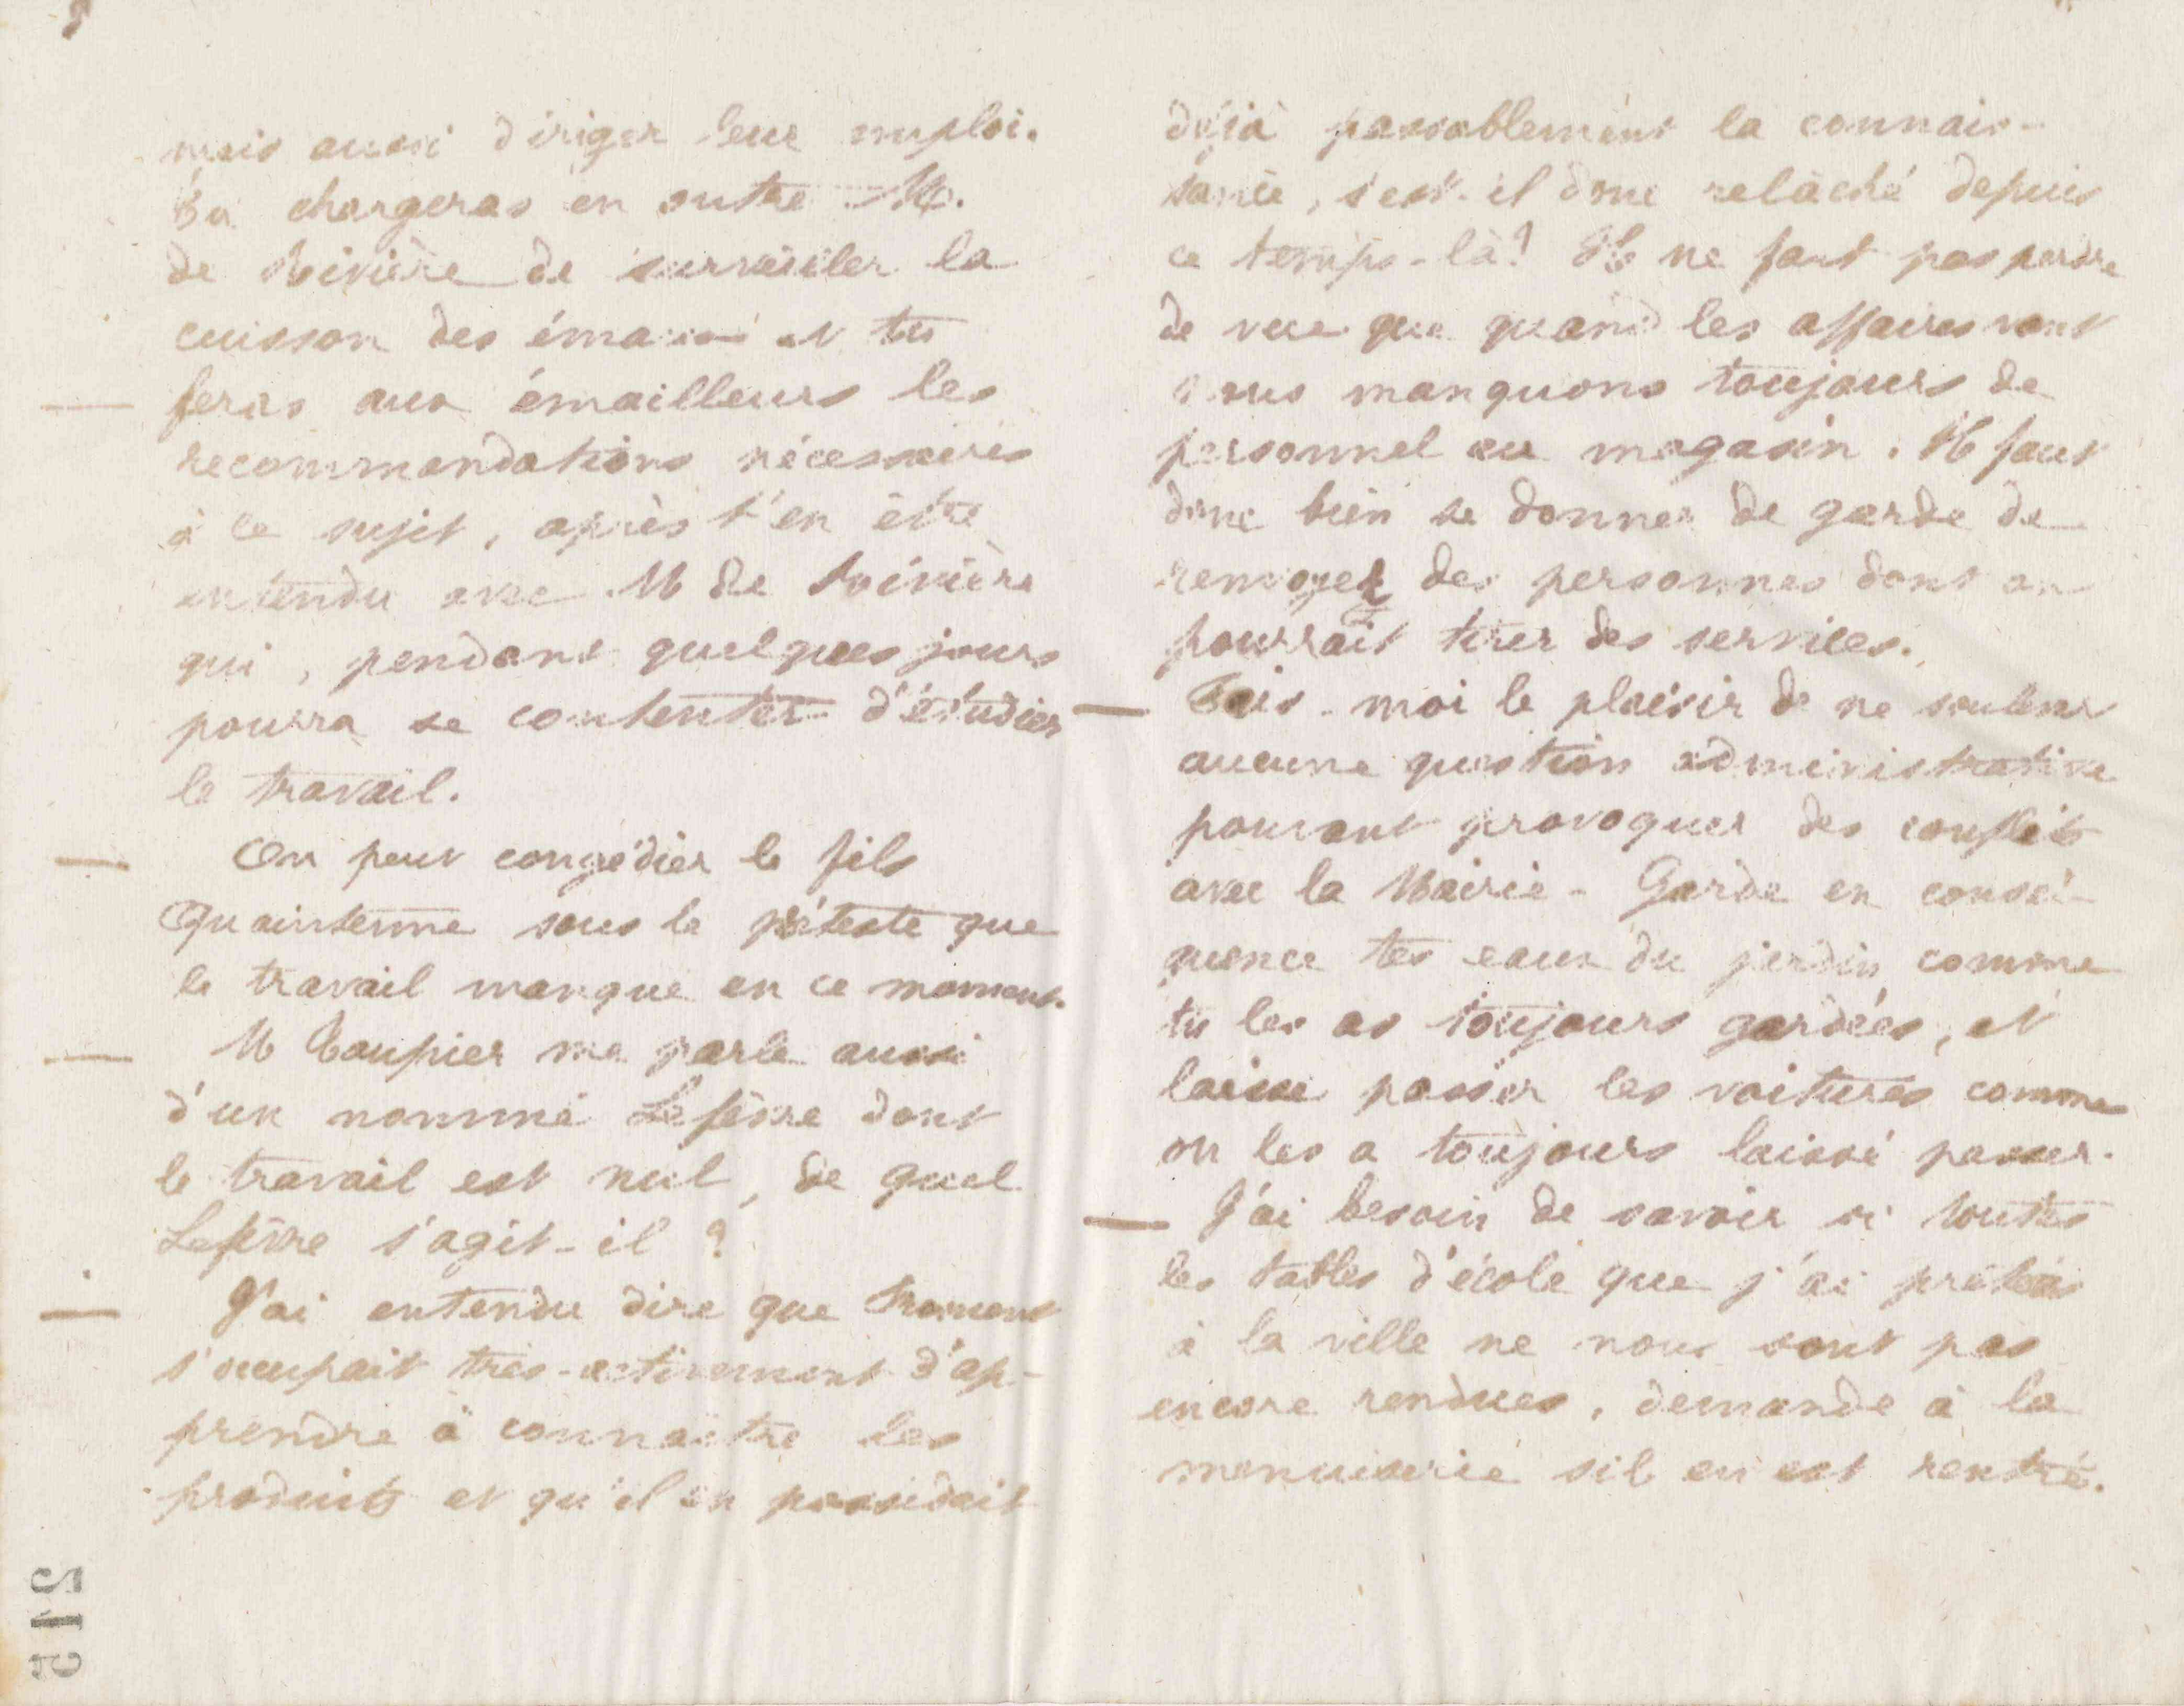 mais aussi diriger leur emploi.
Tu chargeras en outre M.
de Boivière de surveiller la
cuisson des émaux et tu
feras aux émailleurs les
recommandations nécessaires
à ce sujet, après t'en être
entendu avec M de Boivière
qui, pendant quelques jours
pourra se contenter d'étudier
le travail.
On peut congédier le fils
Quaintenne sous le prétexte que
le travail manque en ce moment.
M Taupier me parle aussi
d'un nommé Lefèvre dont
le travail est nul, de quel
Lefèvre s'agit-il ?
J'ai entendu dire que
s'occupait très-activement d'ap-
prendre à connaître les
produits et qu'il en possédait
déjà passablement la connais-
sance, s'est-il donc relâché depuis
ce temps-là? Il ne faut pas perdre
de vue que quand les affaires vont
nous manquons toujours de
personnel au magasin. Il faut
donc bien se donner de garde de
renvoyer des personnes dont on
pourrait tirer des services.
Fais-moi le plaisir de ne soulever
aucune question administrative
pouvant provoquer des conflits
avec la Mairie - Garde en consé-
quence tes eaux du jardin comme
tu les as toujours gardées, et
laisse passer les voitures comme
on les a toujours laissé passer.
J'ai besoin de savoir si toutes
les tables d'école que j'ai prêtées
à la ville ne nous sont pas
encore rendues, demande à la
menuiserie s'il en est rentré.
215